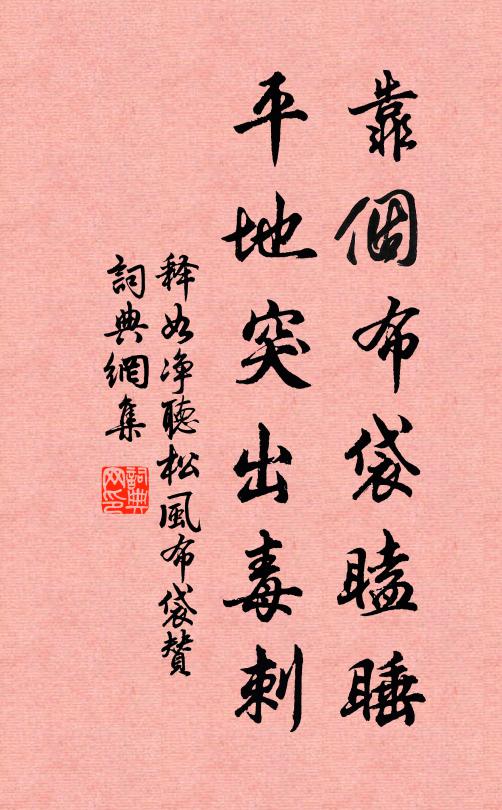 靠個布袋瞌睡
平地突出毒刺
释如净聽松風布袋贊
詞典網集
詞典网印